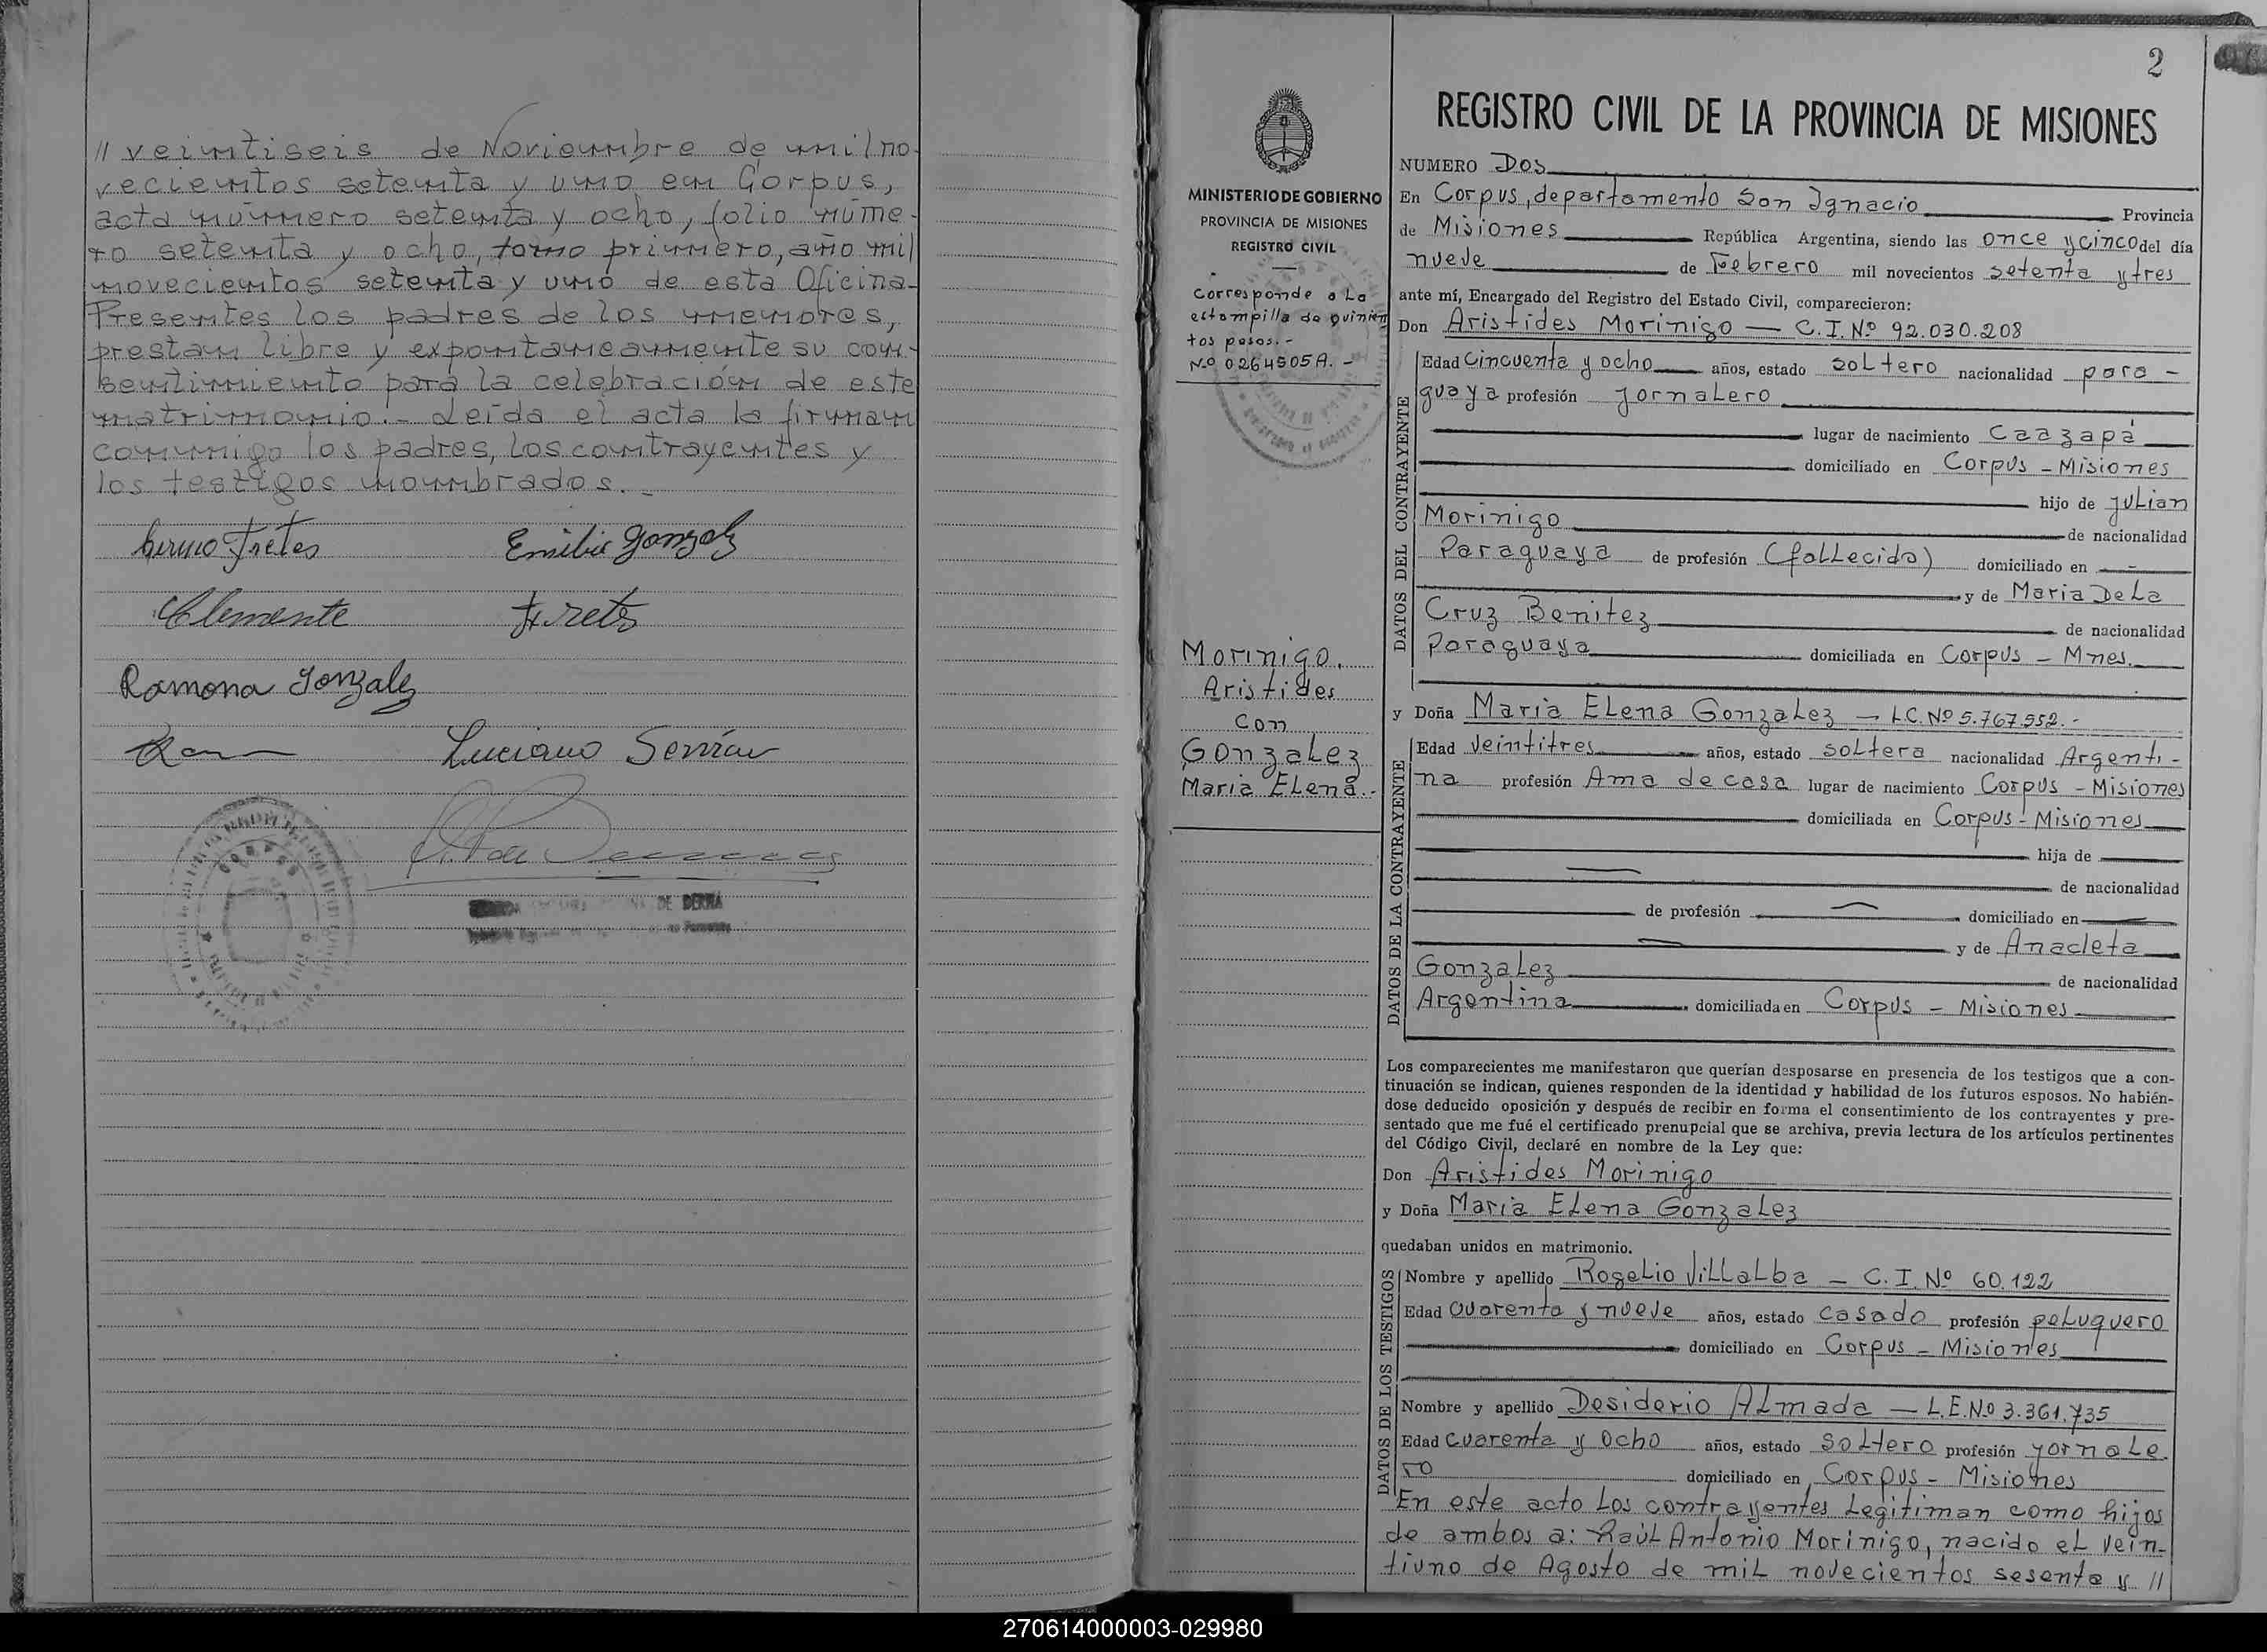 // veintiseis de Noviembre de mil no-
vecientos setenta y uno en Corpus,
acta número setenta y ocho, folio núme-
ro setenta y ocho, tomo primero, año mil
novecientos setenta y uno de esta Oficina-
Presentes los padres de los menores,
prestan libre y expontaneamente su con-
sentimiento para la celebración de este
matrimonio.- Leída el acta la firman
conmigo los padres, los contrayentes y
los testigos nombrados.-
Fretes Emilia Gonzalez
Clemente Fretes
Ramona Gonzalez
Luciano
DE
CORPUS
2
REGISTRO CIVIL DE LA PROVINCIA DE MISIONES
MINISTERIO DE GOBIERNO
PROVINCIA DE MISIONES
REGISTRO CIVIL
Corresponde a la
estampilla de quinien
tos pesos.-
Nº 0264505A.-
Morinigo,
Aristides
con
Gonzalez
Maria Elena.-
NUMERO Dos
En Corpus, departamento San Ignacio Provincia
de Misiones República Argentina, siendo las once y cinco del día
nueve de Febrero mil novecientos setenta y tres
ante mí, Encargado del Registro del Estado Civil, comparecieron:
Don Aristides Morinigo — C.I.Nº 92.030.208
DATOS DEL CONTRAYENTE
Edad Cincuenta y ocho años, estado soltero nacionalidad para-
guaya profesión Jornalero
lugar de nacimiento Caazapá
domiciliado en Corpus - Misiones
hijo de Julian
Morinigo de nacionalidad
Paraguaya de profesión (fallecido) domiciliado en —
y de Maria De La
Cruz Benitez de nacionalidad
Paraguaya domiciliada en Corpus - Mnes.
y Doña Maria Elena Gonzalez — L.C.Nº 5.767.552.-
DATOS DE LA CONTRAYENTE
Edad Veintitres años, estado soltera nacionalidad Argenti-
na profesión Ama de casa lugar de nacimiento Corpus - Misiones
domiciliada en Corpus - Misiones
hija de
de nacionalidad
de profesión domiciliado en
y de Anacleta
Gonzalez de nacionalidad
Argentina domiciliada en Corpus - Misiones
Los comparecientes me manifestaron que querían desposarse en presencia de los testigos que a con-
tinuación se indican, quienes responden de la identidad y habilidad de los futuros esposos. No habién-
dose deducido oposición y después de recibir en forma el consentimiento de los contrayentes y pre-
sentado que me fué el certificado prenupcial que se archiva, previa lectura de los artículos pertinentes
del Código Civil, declaré en nombre de la Ley que:
Don Aristides Morinigo
y Doña Maria Elena Gonzalez
quedaban unidos en matrimonio.
DATOS DE LOS TESTIGOS
Nombre y apellido Rogelio Villalba — C.I.Nº 60.122
Edad Cuarenta y nueve años, estado casado profesión peluquero
domiciliado en Corpus - Misiones
Nombre y apellido Desiderio Almada — L.E.Nº 3.361.735
Edad Cuarenta y ocho años, estado soltero profesión yornale
ro domiciliado en Corpus - Misiones
En este acto los contrayentes Legitiman como hijos
de ambos a: Raúl Antonio Morinigo, nacido el vein-
tiuno de Agosto de mil novecientos sesenta y //
270614000003-029980